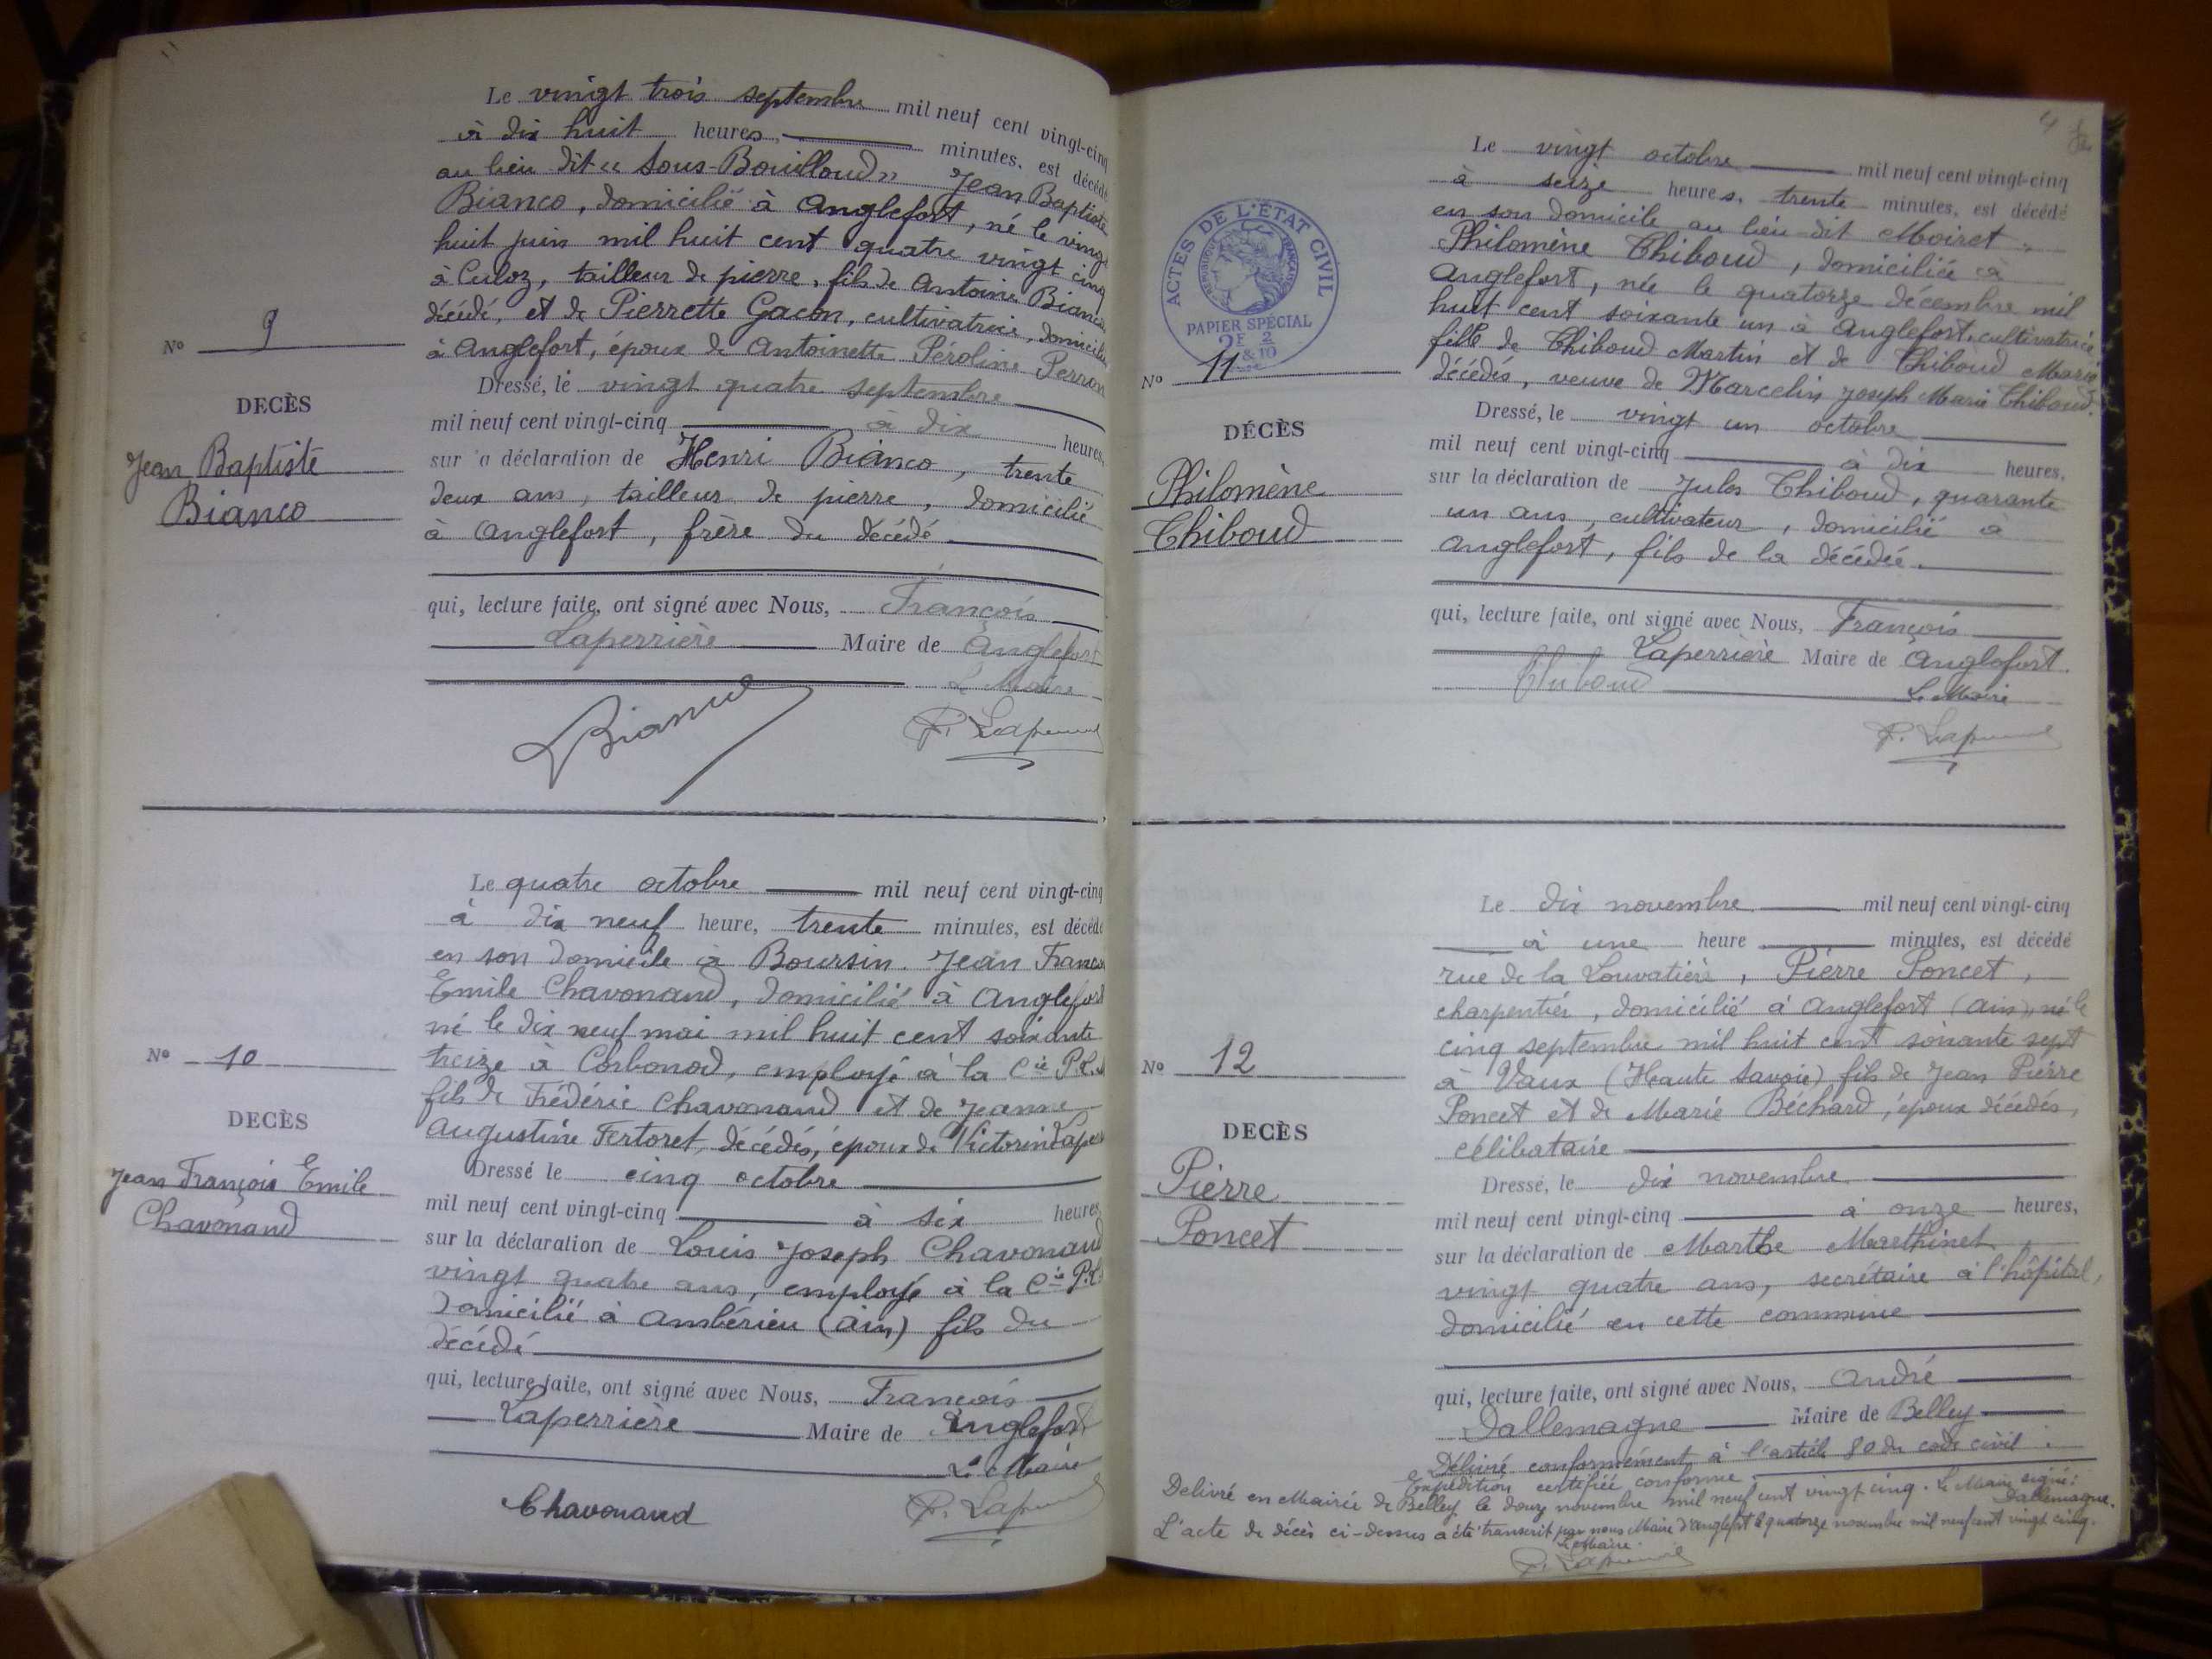 Le vingt trois septembre mil neuf cent vingt-cinq
à dix huit heures, minutes, est décédé
au lieu dit « Sous-Bouilloud » Jean Baptiste
Bianco, domicilié à Anglefort, né le vingt
huit juin mil huit cent quatre vingt cinq
à Culoz, tailleur de pierre, fils de Antoine Bianco
décédé, et de Pierrette Gacon, cultivatrice, domiciliée
à Anglefort, époux de Antoinette Péroline Perron
No 9
DECÈS
Jean Baptiste
Bianco
Dressé, le vingt quatre septembre
mil neuf cent vingt-cinq à dix heures,
sur la déclaration de Henri Bianco, trente
deux ans, tailleur de pierre, domicilié
à Anglefort, frère du décédé
qui, lecture faite, ont signé avec Nous, François
Laperrière Maire de Anglefort
Le Maire
Bianco F. Laperrière
Le quatre octobre mil neuf cent vingt-cinq
à dix neuf heure, trente minutes, est décédé
en son domicile à Boursin. Jean François
Emile Chavonand, domicilié à Anglefort
né le dix neuf mai mil huit cent soixante
treize à Corbonod, employé à la Cie P.L.
fils de Frédéric Chavonand et de Jeanne
Augustine Fertoret, décédés, époux de Victorine
No 10
DECÈS
Jean François Emile
Chavonand
Dressé le cinq octobre
mil neuf cent vingt-cinq à six heures
sur la déclaration de Louis Joseph Chavonand
vingt quatre ans, employé à la Cie P.L.
domicilié à Ambérieu (Ain) fils du
décédé
qui, lecture faite, ont signé avec Nous, François
Laperrière Maire de Anglefort
Le Maire
Chavonand F. Laperrière
4
Le vingt octobre mil neuf cent vingt-cinq
à seize heures, trente minutes, est décédé
en son domicile au lieu-dit Moiret.
Philomène Thiboud, domiciliée à
Anglefort, née le quatorze décembre mil
huit cent soixante un à Anglefort, cultivatrice
fille de Thiboud Martin et de Thiboud Marie
décédés, veuve de Marcelin Joseph Marie Thiboud.
ACTES DE L'ÉTAT CIVIL
RÉPUBLIQUE FRANÇAISE
PAPIER SPÉCIAL
2F 2
&10
No 11
DÉCÈS
Philomène
Thiboud
Dressé, le vingt un octobre
mil neuf cent vingt-cinq à dix heures,
sur la déclaration de Jules Thiboud, quarante
un ans, cultivateur, domicilié à
Anglefort, fils de la décédée.
qui, lecture faite, ont signé avec Nous, François
Laperrière Maire de Anglefort
Thiboud Le Maire
F. Laperrière
Le dix novembre mil neuf cent vingt-cinq
à une heure minutes, est décédé
rue de la Louvatière, Pierre Poncet,
charpentier, domicilié à Anglefort (Ain), né le
cinq septembre mil huit cent soixante sept
à Vaux (Haute Savoie) fils de Jean Pierre
Poncet et de Marie Béchard, époux décédés,
célibataire
No 12
DECÈS
Pierre
Poncet
Dressé, le dix novembre
mil neuf cent vingt-cinq à onze heures,
sur la déclaration de Marthe Marthinet
vingt quatre ans, secrétaire à l'hôpital,
domicilié en cette commune
qui, lecture faite, ont signé avec Nous, André
Dallemagne Maire de Belley
Délivré conformément à l'article 80 du code civil.
Expédition certifiée conforme
Delivré en Mairie de Belley le douze novembre mil neuf cent vingt cinq. Le Maire signé: Dallemagne.
L'acte de décès ci-dessus a été transcrit par nous Maire d'Anglefort le quatorze novembre mil neuf cent vingt cinq.
Le Maire.
F. Laperrière